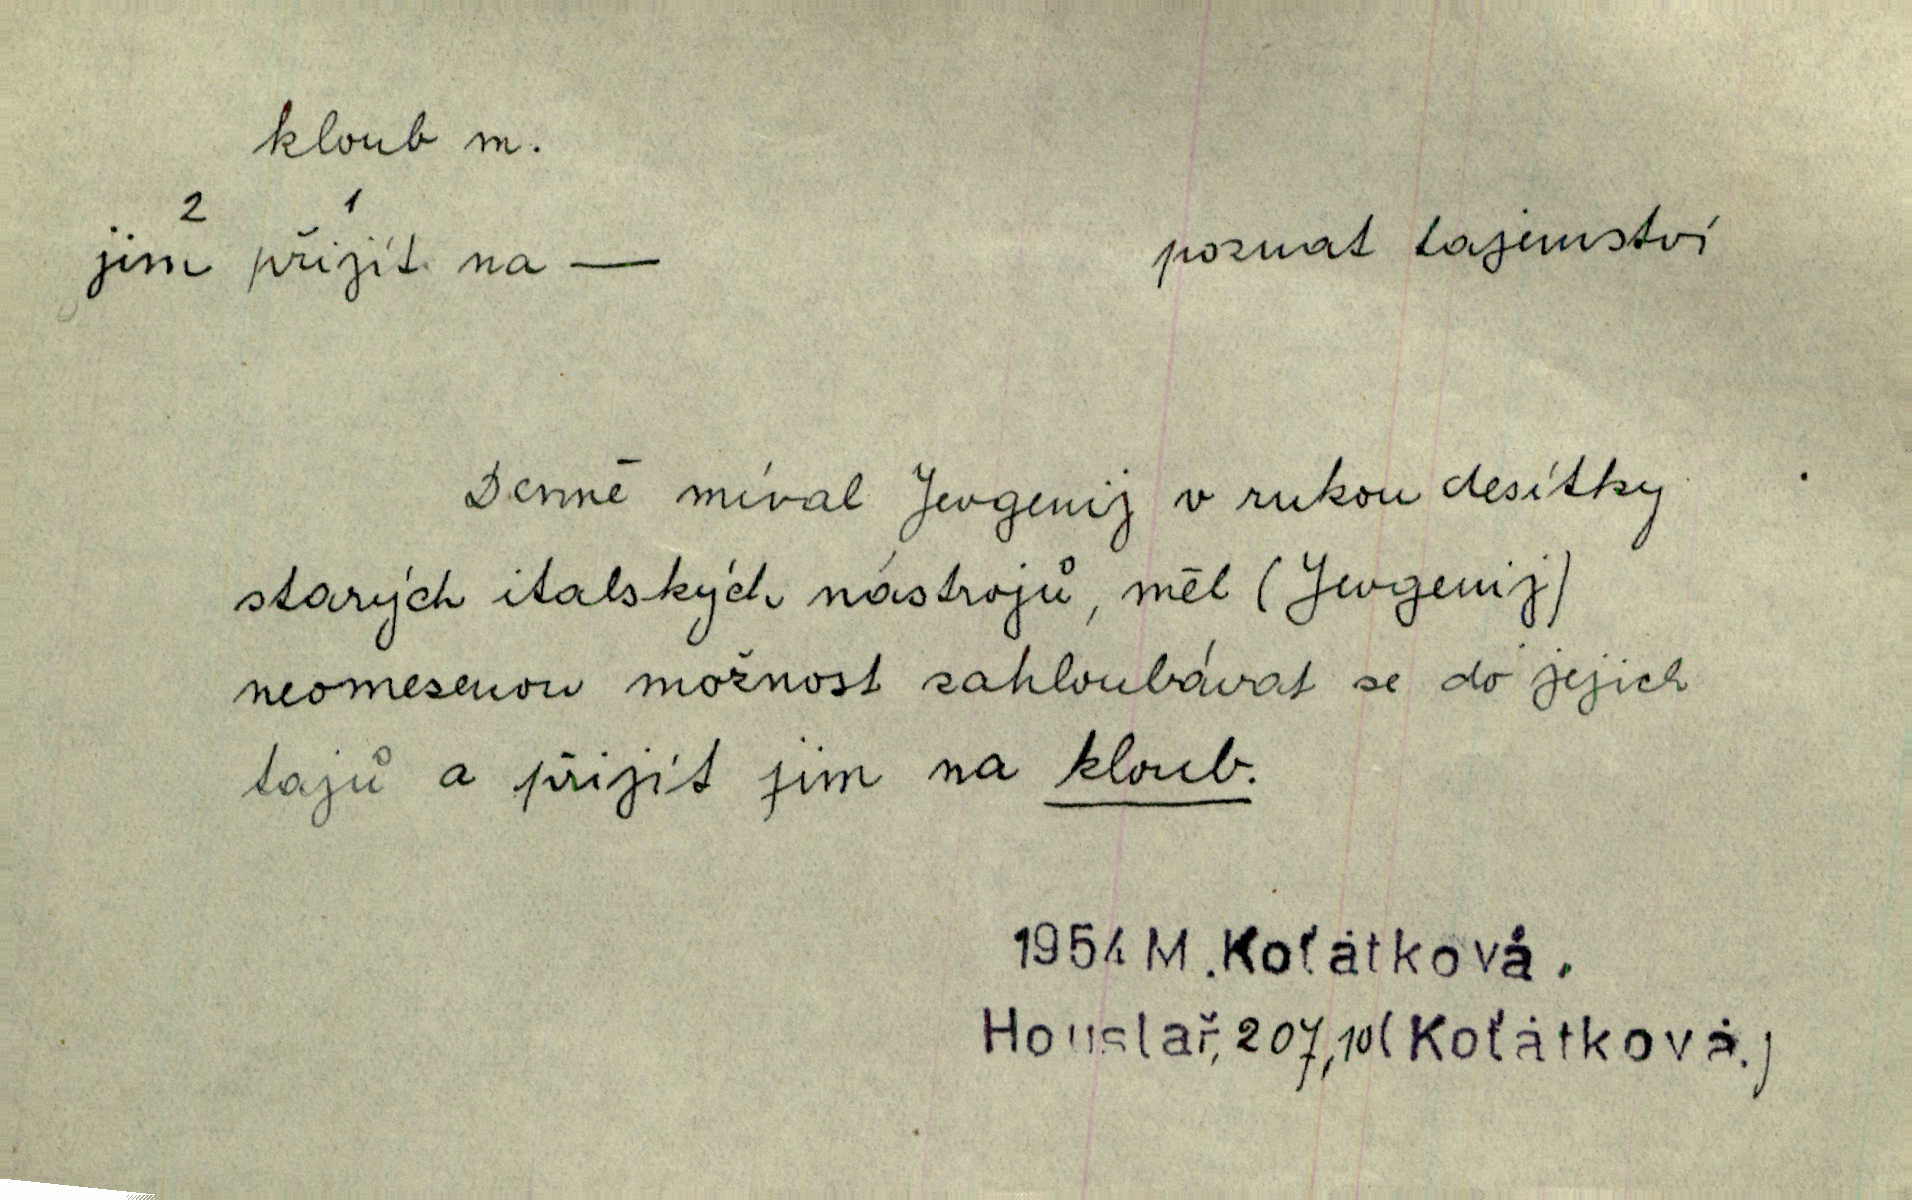 kloub m.
2 1
jim přijít na —
poznat tajemství
Denně míval Jevgenij v rukou desítky
starých italských nástrojů, měl (Jevgenij)
neomezenou možnost zahloubávat se do jejich
tajů a přijít jim na kloub.
1954 M. Koťátková.
Houslař, 207,10 (Koťátková.)